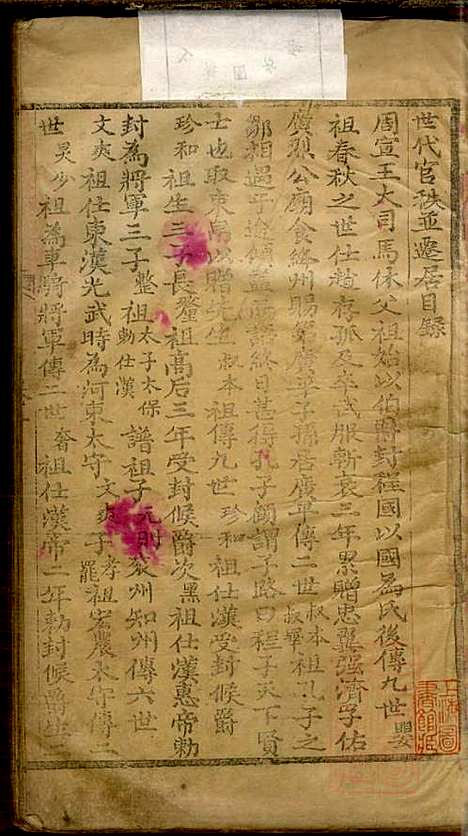 世代官秩並遷居目錄
周宣王大司馬休父祖始以伯爵封程國以國為氏後傳九世嬰
祖春秋之世仕趙存孤及卒武服斬衰三年累贈忠翼强濟孚佑
廣烈公廟食絳州賜第廣平子孫居廣平傳二世叔本祖孔子之
郯相遇于途傾蓋而語終日甚得孔子顧謂子路曰程子天下賢
士也取束帛以贈先生叔本祖傳九世珍和祖仕漢受封候爵
珍和祖生三子長釐祖高后三年受封候爵次黑祖仕漢惠帝勅
封為將軍三子整祖太子太保勅仕漢譜祖子元則袁州知州傳六世
文爽祖仕東漢光武時為河東太守文爽子孝罷祖宏農太守傳二
世炅少祖為車將將軍傳二世奢祖仕漢帝二年勅封候爵生二
上海圖書館藏